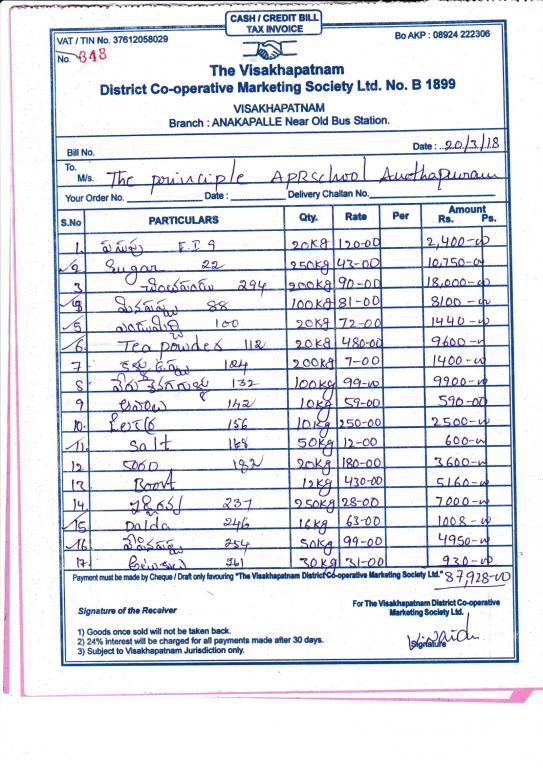 CASH / CREDIT BILL
TAX INVOICE
VAT / TIN No. 37612058029
Bo AKP : 08924 222306
No. 348
The Visakhapatnam
District Co-operative Marketing Society Ltd. No. B 1899
VISAKHAPATNAM
Branch : ANAKAPALLE Near Old Bus Station.
Bill No. Date : 20/3/18
To.
M/s. The principle APRSchool
Your Order No. Date : Delivery Challan No.
S.No PARTICULARS Qty. Rate Per Amount
Rs. Ps.
1. పసుపు 20Kg 120-00 2,400-00
2 Sugar 22 250Kg 43-00 10,750-00
3 294 200Kg 90-00 18,000-00
4 మినపప్పు 88 100Kg 81-00 8100-00
5 100 20Kg 72-00 1440-00
6. Tea powder 112 20Kg 480-00 9600-00
7 124 200Kg 7-00 1400-00
8 132 100Kg 99-00 9900-00
9 142 10Kg 59-00 590-00
10. 156 10Kg 250-00 2500-00
11. Salt 168 50Kg 12-00 600-00
12 182 20Kg 180-00 3600-00
13 Boost 12Kg 430-00 5160-00
14. 237 250Kg 28-00 7000-00
15 Dalda 246 16Kg 63-00 1008-00
16. 254 50Kg 99-00 4950-00
17. 261 30Kg 31-00 930-00
Payment must be made by Cheque / Draft only favouring "The Visakhapatnam District Co-operative Marketing Society Ltd." 87,928-00
For The Visakhapatnam District Co-operative
Marketing Society Ltd.
Signature of the Receiver
Signature
1) Goods once sold will not be taken back.
2) 24% interest will be charged for all payments made after 30 days.
3) Subject to Visakhapatnam Jurisdiction only.